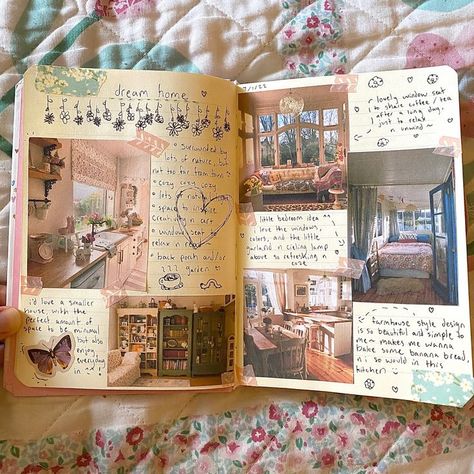 dream home
• surrounded by
lots of nature, but
not too far from town
• cozy cozy cozy
• lots of natural
space to inspire
creativity in car
• window seat to
relax n create in
• back porch and/or
garden
i'd love a smaller
house with the
perfect amount of
space to be minimal
but also
enjoy
everyday
in
lovely window seat
to share coffee / tea
after a long day,
or just to relax
n unwind
little bedroom idea
i love the windows,
colors, and the little
garland n ceiling lamp
above so refreshing n
cozy
farmhouse style design
is so beautiful and simple to
me ~ makes me wanna
bake some banana bread
n i so would in this
kitchen!